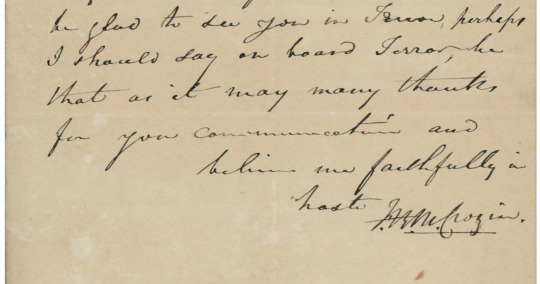 be glad to see you in Terror, perhaps
I should say on board Terror, be
that as it may many thanks
for you communication and
believe me faithfully in
haste F.R.M. Crozier.